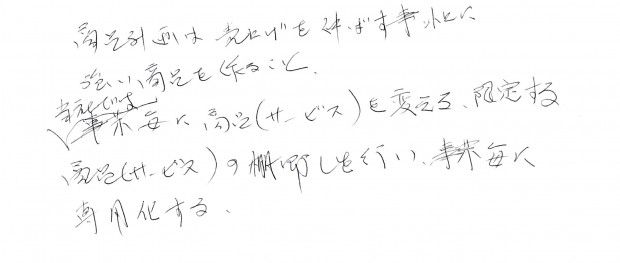 商品計画は売上げを伸ばす事以上に
強い商品を作ること、
事業毎に商品(サービス)を変える、限定する
商品(サービス)の棚卸しを行い、事業毎に
専用化する、